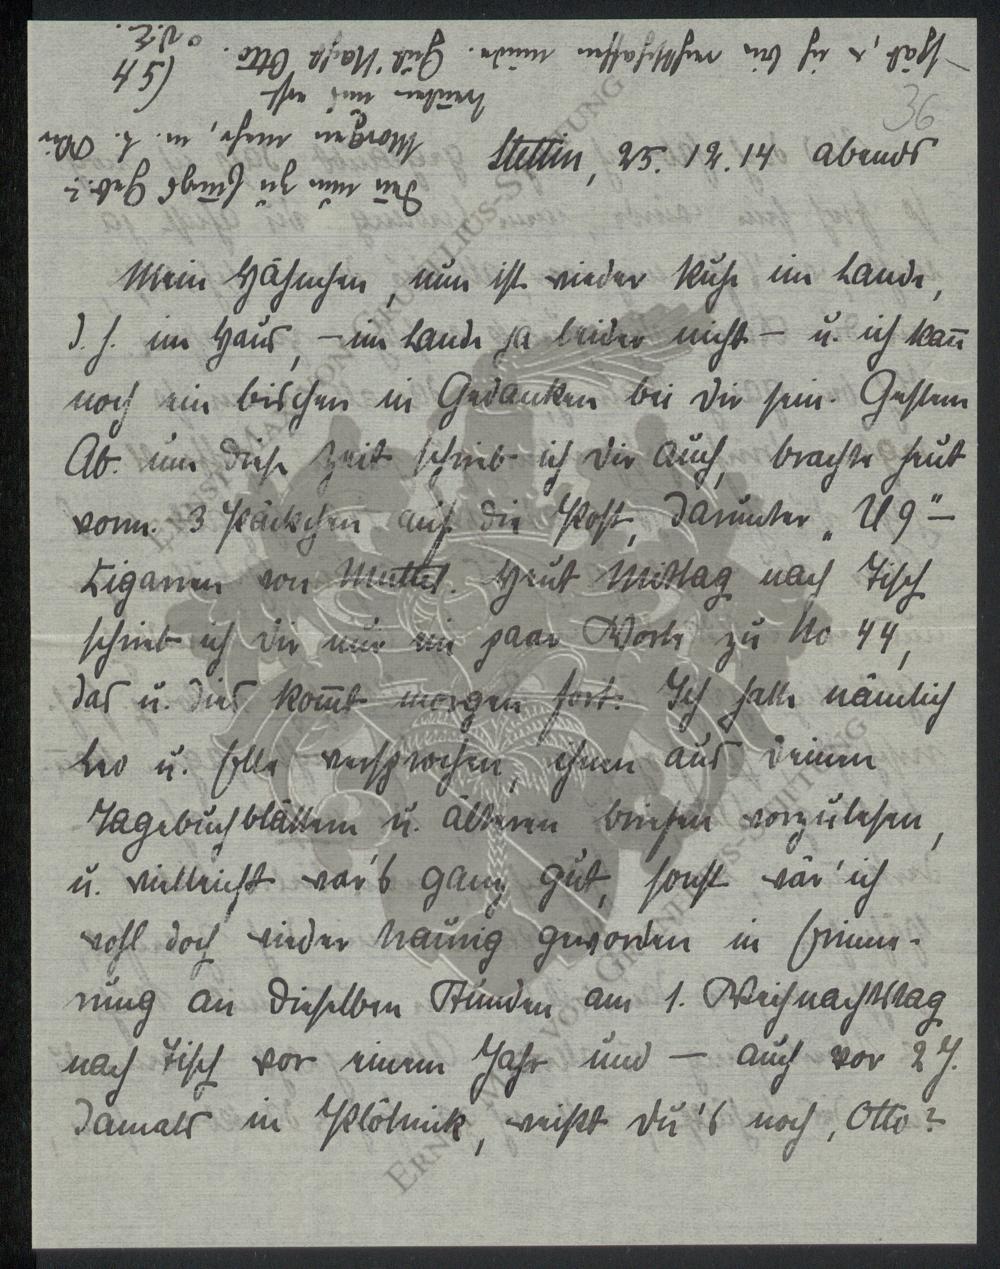 36
Stettin, 25. 12. 14 abends
Mein Hähnchen, nun ist wieder Ruhe im Lande,
d. h. im Haus, – im Lande ja leider nicht – u. ich kann
noch ein bischen in Gedanken bei Dir sein. Gestern
Ab. um diese Zeit schrieb ich Dir auch, brachte heut
vorm. 3 Päckchen auf die Post, darunter „U 9"–
Zigarren von Muttel. Heut Mittag nach Tisch
schrieb ich Dir nur ein paar Worte zu No 44,
das u. dies kommt morgen fort. Ich hatte nämlich
Leo u. Elle versprochen, ihnen aus Deinen
Tagebuchblättern u. älteren Briefen vorzulesen,
u. vielleicht war's ganz gut, sonst wär' ich
wohl doch wieder traurig geworden in Erinne-
rung an dieselben Stunden am 1. Weihnachtstag
nach Tisch vor einem Jahr und – auch vor 2 J.
damals in Plötnick, weißt Du's noch, Otto?
Morgen mehr, m. l.
spät, u. ich bin rechtschaffen müde. Gut' Nacht Otto
(54
D. E.
ERNST MARTIN VON GRÜNELIUS-STIFTUNG